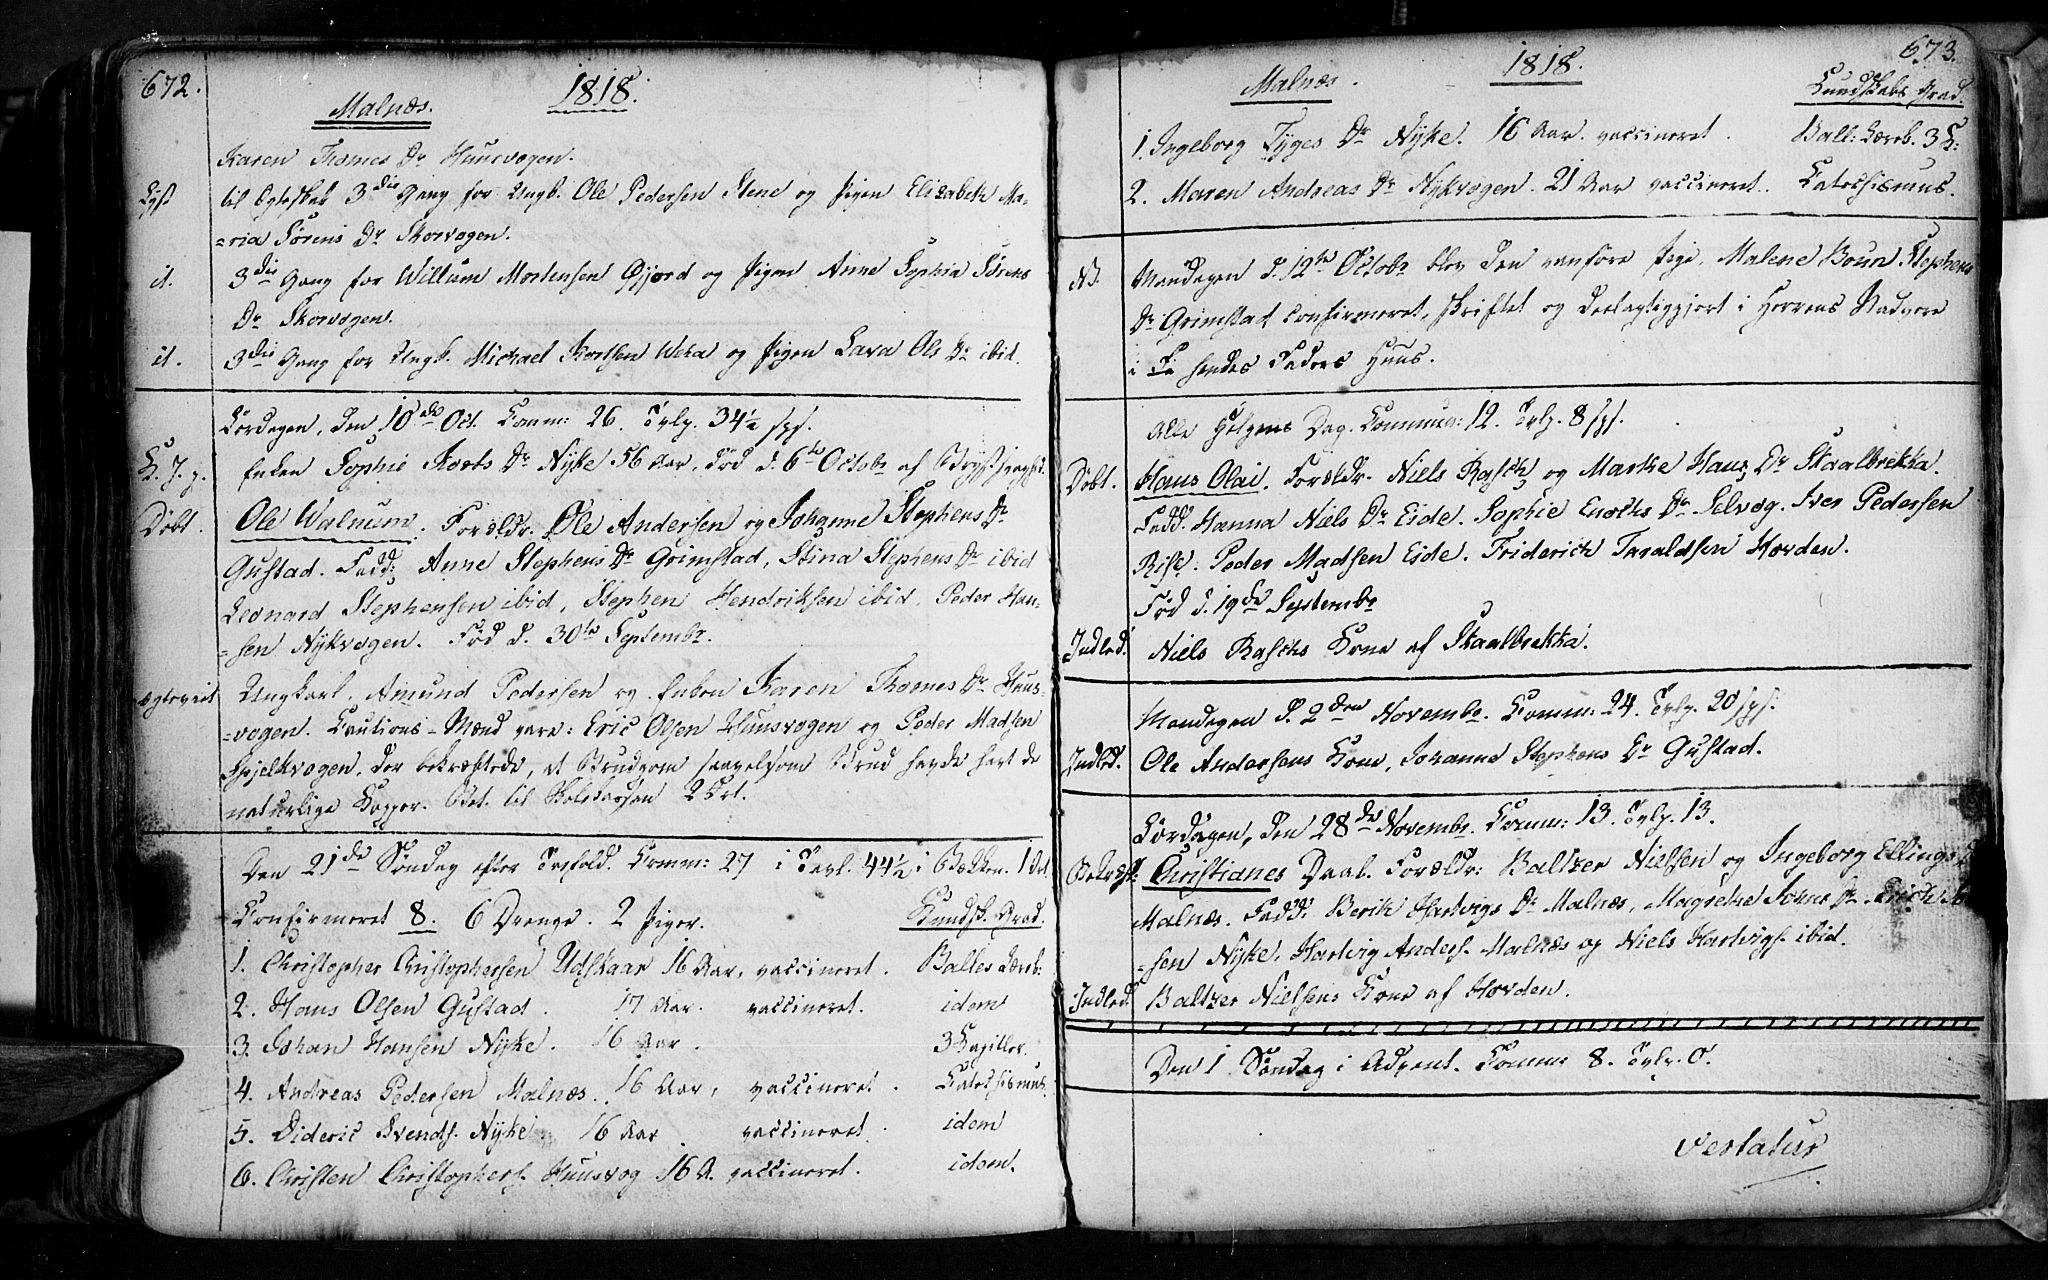 672.
Malnæs.
1818.
Karen Thomes Dr Huusvogen.
Lyst til Egteskab 3die Gang for Ungk. Ole Pedersen Stene og Pigen Elisabeth Ma-
=ria Sørens Dr Skorvogen.
it. 3die Gang for Willum Mortensen Gjord og Pigen Anne Sophia Sørens
Dr Skorvogen.
it. 3die Gang for Ungk. Michael Kortsen Weta og Pigen Lava Ols Dr ibid.
Lørdagen, den 10de Oct. Comm: 26. Tvlp. 34½ sps.
Enken Sophie Korts Dr Nyke 56 Aar, død d. 6te Octobr af
Døbt. Ole Walnum. Forældr. Ole Andersen og Johanne Stephens Dr
Gustad. Fadd: Anne Stephens Dr Grimstad, Stina Stephens Dr ibid
Leonard Stephensen ibid, Stephen Hendriksen ibid, Peder Han-
=sen Nykvogen. Fød d. 30te Septembr.
Ungkarl. Amund Pedersen og Enken Karen Thomes Dr Huus-
=vogen. Cautions-Mænd vare: Eric Olsen Huusvogen og Peder Madsen
Spjelkvogen, der bekræftede, at Brudgom saavelsom Brud havde havt de
naturlige Kopper. Bet. til Skolekassen 2 Ort.
Den 21de Søndag efter Trefold. Comm: 27 i Tavl. 44½ i Bekken. 1 Ort
Confirmeret 8. 6 Drenge. 2 Piger. Kundsk. Grad.
1. Christopher Christophersen Udskaar 16 Aar, vaccineret. Balles Læreb:
2. Hans Olsen Gustad. 17 Aar. vaccineret. idem
3. Johan Hansen Nyke. 16 Aar. 3 Kapitler.
4. Andreas Pedersen Malnæs. 16 Aar, vaccineret. Catechismus.
5. Dideric Svends. Nyke 16 Aar vaccineret. idem
6. Christen Christophers. Huusvog 16 A. vaccineret. idem.
673.
Malnæs.
1818.
Kundskabs Grad.
1. Ingeborg Tyges Dr Nyke. 16 Aar. vaccineret. Ball: Læreb. 3 K:
2. Maren Andreas Dr Nykvogen. 21 Aar vaccineret. Catechismus.
NB. Mandagen d. 12te Octobr blev den vanføre Pige, Malene Boun Stephens
Dr Grimstad confirmeret, skriftet og deelagtiggjort i Herrens Nadvere
i hendes Faders Huus.
Alle Helgens Dag. Commun: 12. Tvlp. 8 sps.
Døbt. Hans Olai. Forældr. Niels Rasch og Marthe Hans Dr Skaalbrekka.
Fadd. Hanna Niels Dr Eide. Sophie Enochs Dr Selvog. Iver Pedersen
Rise. Peder Madsen Eide. Friderich Taraldsen Hovden.
Fød d. 19de Septembr
Indled. Niels Raschs Kone af Skaalbrekka.
Mandagen d. 2den Novembr. Comm: 24. Tvlp. 20 sps.
Indled. Ole Andersens Kone, Johanne Stephens Dr Gustad.
Lørdagen, den 28de Novembr. Comm: 13. Tvlp. 13.
Bekræft: Christianes Daab. Forældr: Baltzer Nielsen og Ingeborg Ellings
Malnæs. Fadd. Berith Hartvigs Dr Malnæs, Magrethe Johns Dr Erich
=sen Nyke. Hartvig Anders. Malnæs og Niels Hartvigs. ibid.
Indled. Baltzer Nielsens Kone af Hovden.
Den 1 Søndag i Advent. Comm: 8. Tvlp. 0.
Vertatur